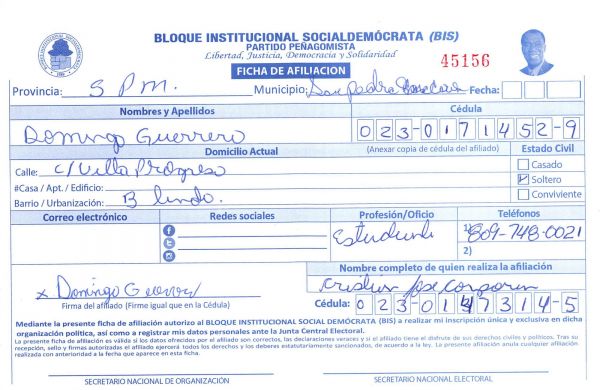 BLOQUE INSTITUCIONAL SOCIALDEMÓCRATA (BIS)
PARTIDO PEÑAGOMISTA
Libertad, Justicia, Democracia y Solidaridad
FICHA DE AFILIACION
45156
Provincia: S P M. Municipio: San Pedro Fecha:
Nombres y Apellidos Cédula
Domingo Guerrero 023-0171452-9
Domicilio Actual (Anexar copia de cédula del afiliado) Estado Civil
Calle: c/ Villa Progreso Casado
#Casa / Apt. / Edificio: Soltero
Barrio / Urbanización: B lindo. Conviviente
Correo electrónico Redes sociales Profesión/Oficio Teléfonos
Estudiante 1) 809-748-0021
2)
Nombre completo de quien realiza la afiliación
x Domingo Guerrero Cristian Jose Corporan
Firma del afiliado (Firme igual que en la Cédula) Cédula: 023-0147314-5
Mediante la presente ficha de afiliación autorizo al BLOQUE INSTITUCIONAL SOCIAL DEMÓCRATA (BIS) a realizar mi inscripción única y exclusiva en dicha
organización política, así como a registrar mis datos personales ante la Junta Central Electoral.
La presente ficha de afiliación es válida si los datos ofrecidos por el afiliado son correctos, las declaraciones veraces y si el afiliado tiene el disfrute de sus derechos civiles y políticos. Tras su
recepción, sello y firmas autorizadas el afiliado ejercerá todos los derechos y los deberes estatutariamente sancionados, de acuerdo a la ley. La presente afiliación anula cualquier afiliación
realizada con anterioridad a la fecha que aparece en esta ficha.
SECRETARIO NACIONAL DE ORGANIZACIÓN SECRETARIO NACIONAL ELECTORAL